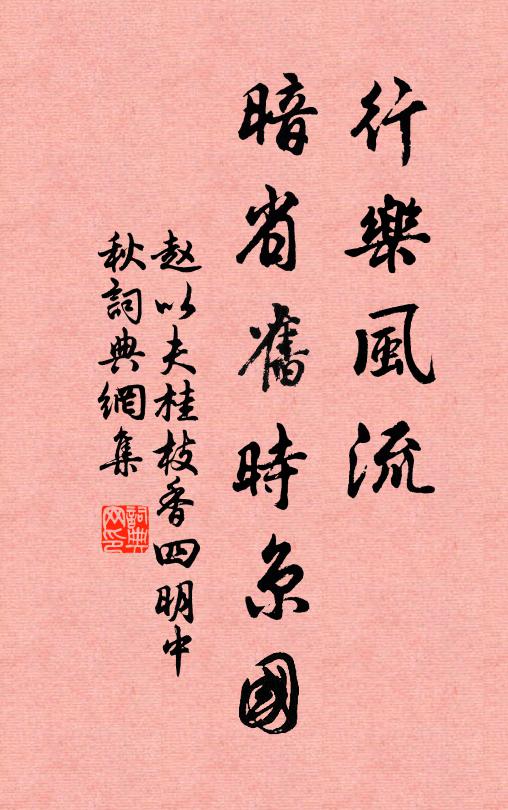 行樂風流
暗省舊時京國
赵以夫桂枝香四明中
秋詞典網集
詞典
网印